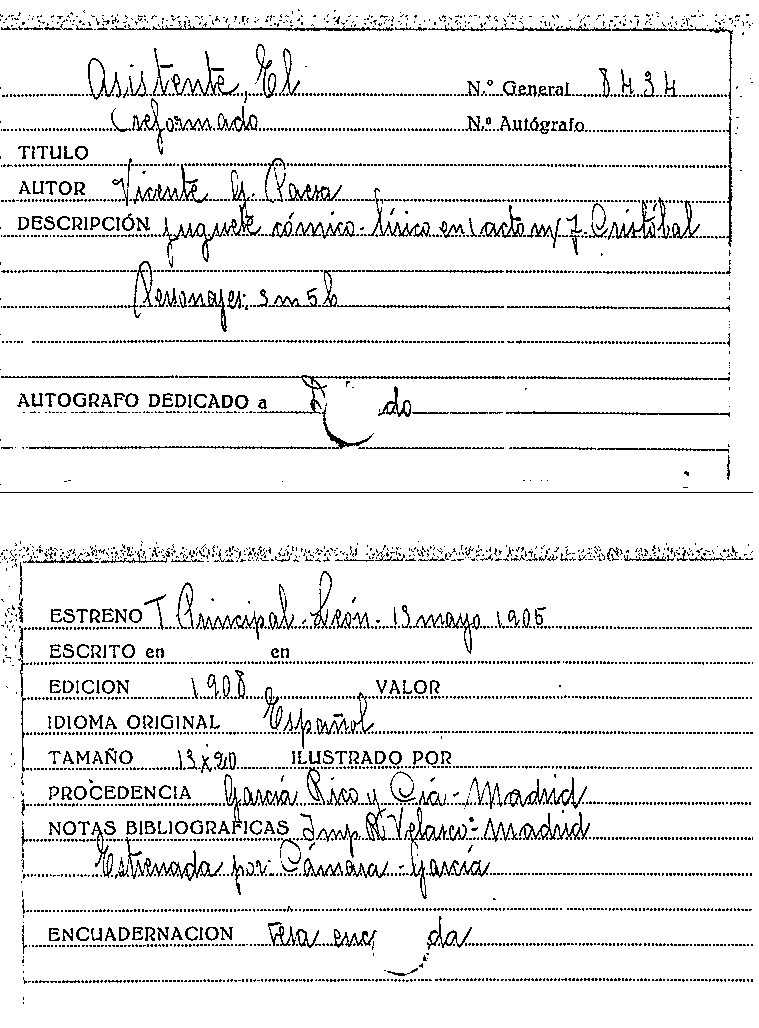 Asistente, El N.º General 8434
(reformado N.º Autógrafo
TITULO
AUTOR Vicente G. Parra
DESCRIPCIÓN juguete cómico-lírico en 1 acto m/ J. Cristóbal
Personajes: 3 m 5 h
AUTOGRAFO DEDICADO a
ESTRENO T Principal-León-13 mayo 1905
ESCRITO en en
EDICION 1908 VALOR
IDIOMA ORIGINAL Español
TAMAÑO 13x20 ILUSTRADO POR
PROCEDENCIA García Rico y Cía-Madrid
NOTAS BIBLIOGRAFICAS Imp R Velasco-Madrid
Estrenada por: Cámara-García
ENCUADERNACION